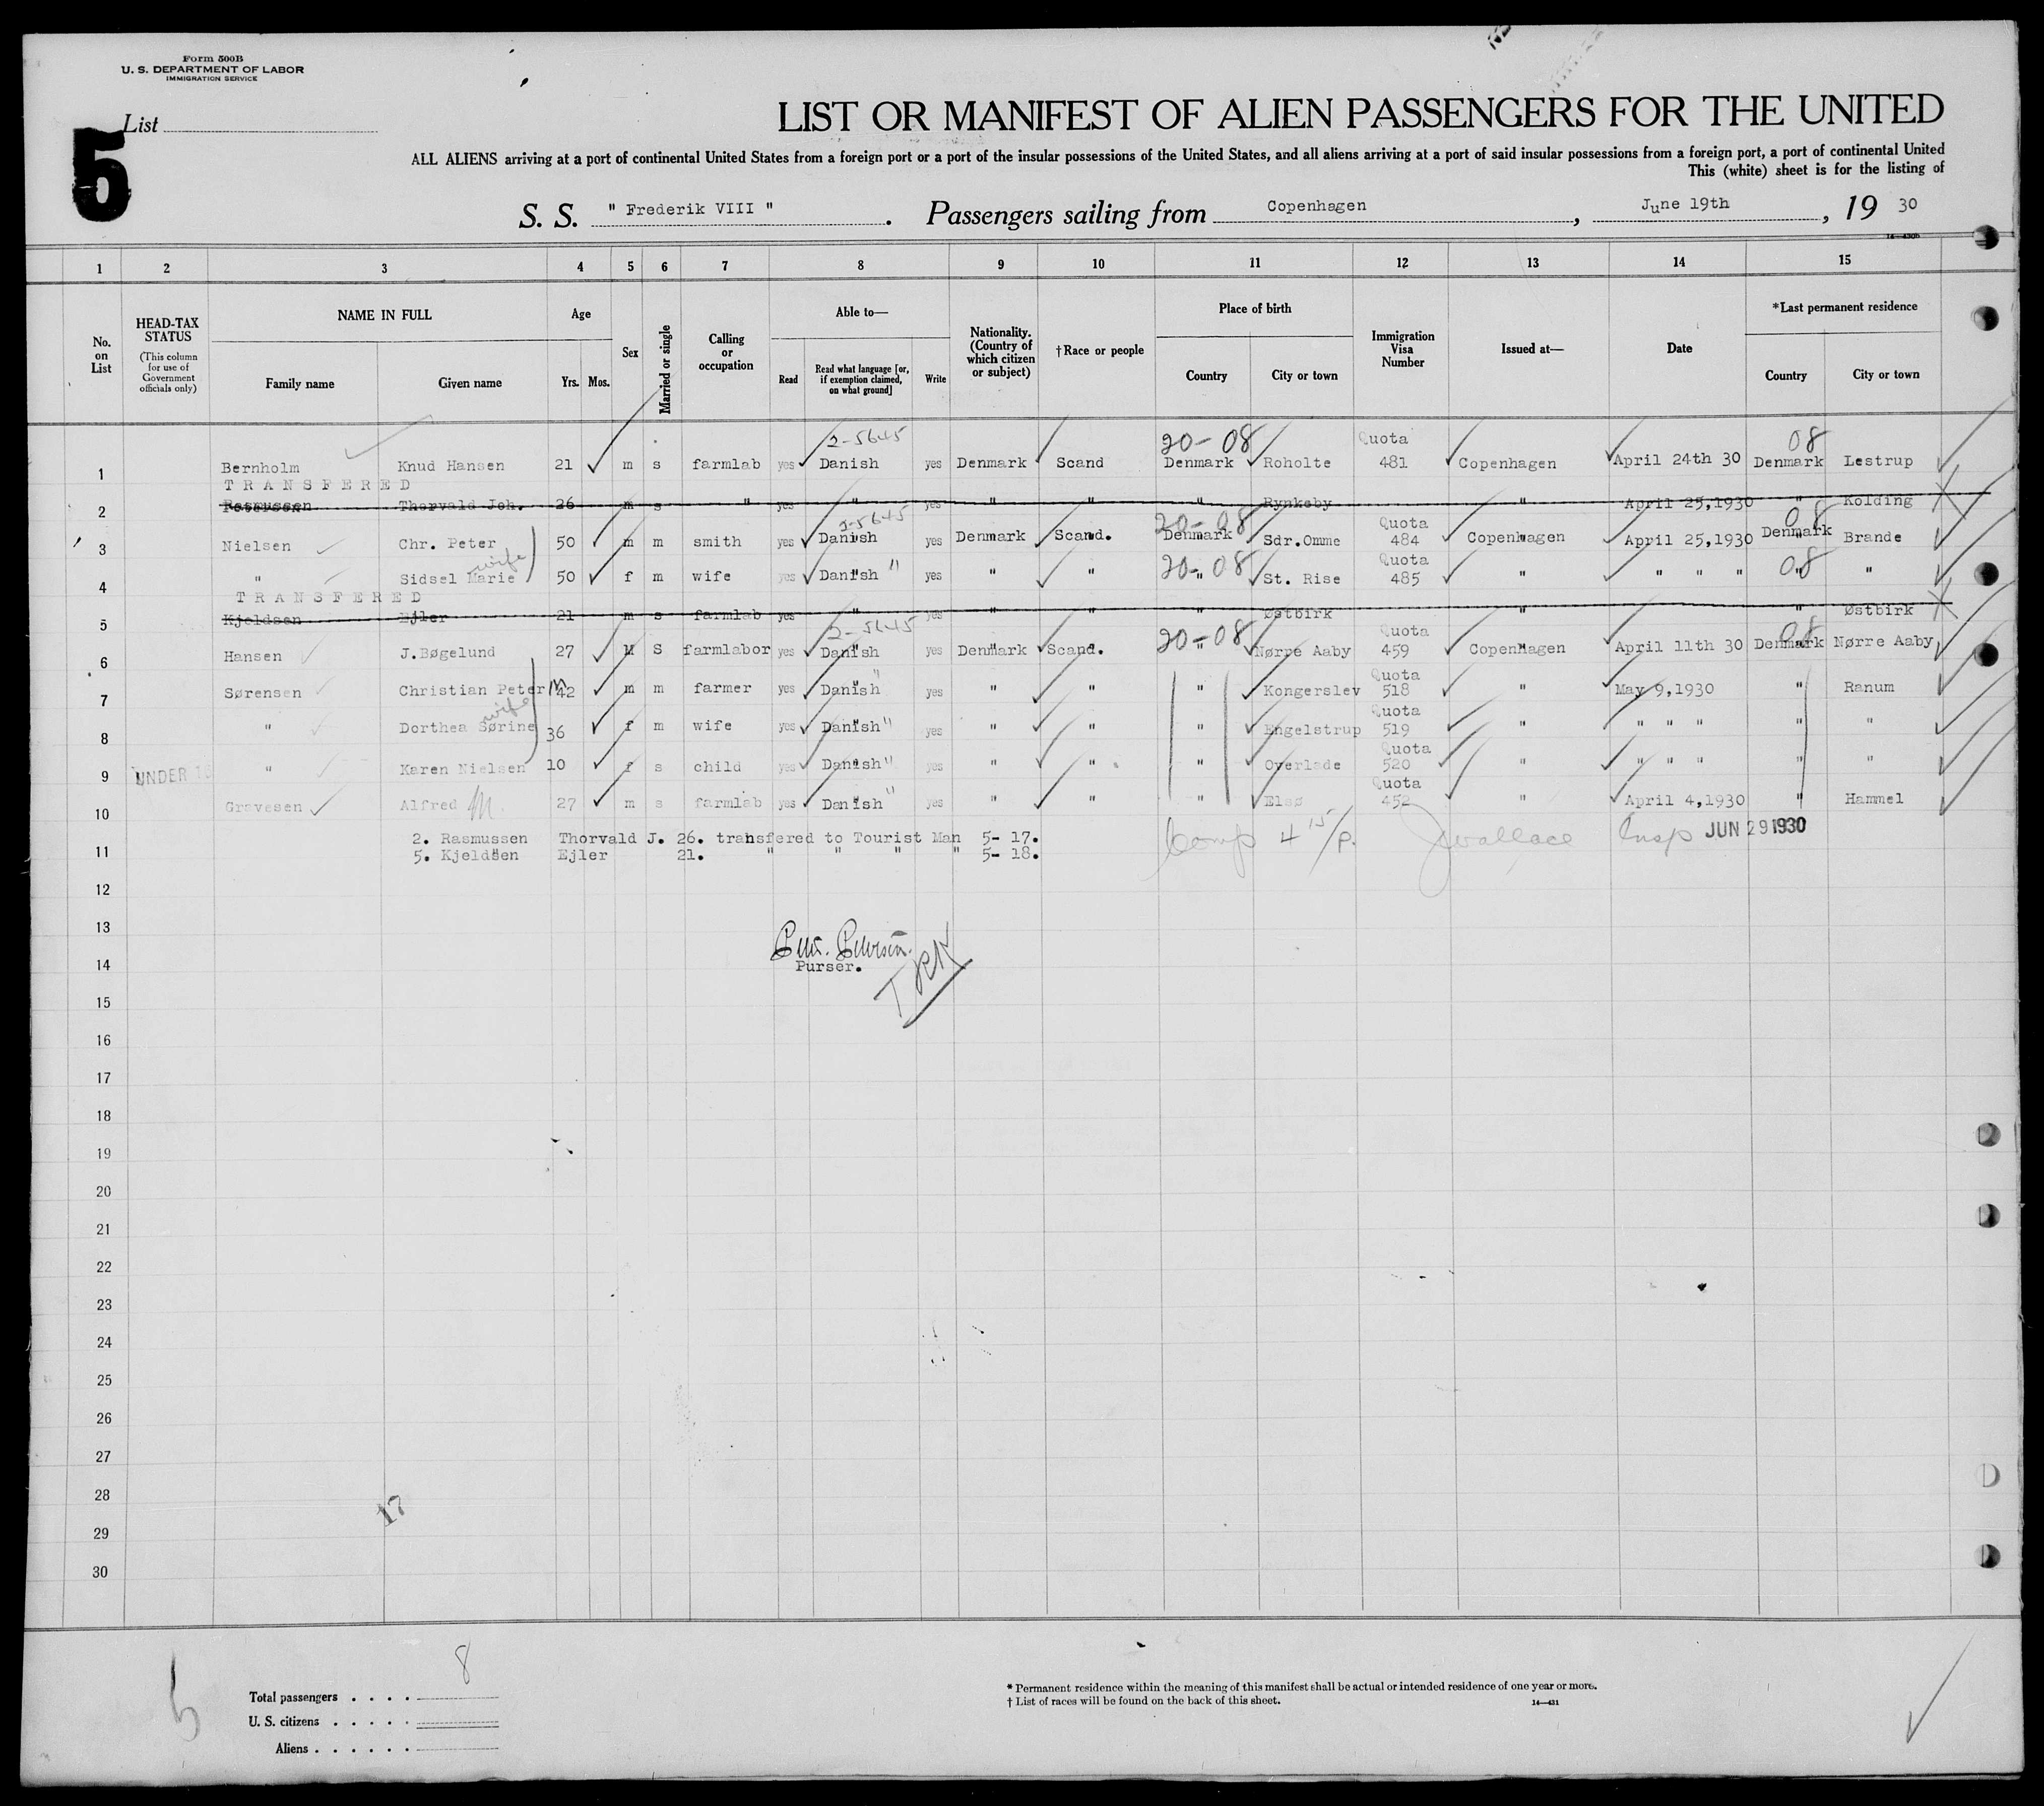 Form 500B
U. S. DEPARTMENT OF LABOR
IMMIGRATION SERVICE
List
5
LIST OR MANIFEST OF ALIEN PASSENGERS FOR THE UNITED
ALL ALIENS arriving at a port of continental United States from a foreign port or a port of the insular possessions of the United States, and all aliens arriving at a port of said insular possessions from a foreign port, a port of continental United
This (white) sheet is for the listing of
S. S. " Frederik VIII ". Passengers sailing from Copenhagen, June 19th, 19 30
1 2 3 4 5 6 7 8 9 10 11 12 13 14 15
No. on List
HEAD-TAX STATUS
(This column for use of Government officials only)
NAME IN FULL
Family name Given name
Age
Yrs. Mos.
Sex
Married or single
Calling or occupation
Able to—
Read
Read what language [or, if exemption claimed, on what ground]
Write
Nationality. (Country of which citizen or subject)
†Race or people
Place of birth
Country City or town
Immigration Visa Number
Issued at—
Date
*Last permanent residence
Country City or town
2-5645 20-08 Quota 08
1 Bernholm Knud Hansen 21 m s farmlab yes Danish yes Denmark Scand Denmark Roholte 481 Copenhagen April 24th 30 Denmark Lestrup
TRANSFERED
2 Rasmussen Thorvald Joh. 26 m s " yes " yes " " " Rynkeby " April 25,1930 " Kolding
2-5645 20-08 Quota 08
3 Nielsen Chr. Peter 50 m m smith yes Danish yes Denmark Scand. Denmark Sdr.Omme 484 Copenhagen April 25,1930 Denmark Brande
wife 20-08 Quota 08
4 " Sidsel Marie 50 f m wife yes Danish " yes " " " St. Rise 485 " " " " " "
TRANSFERED
5 Kjeldsen Ejler 21 m s farmlab yes " yes " " " Østbirk " " Østbirk
2-5645 20-08 Quota 08
6 Hansen J.Bøgelund 27 M S farmlabor yes Danish yes Denmark Scand. " Nørre Aaby 459 Copenhagen April 11th 30 Denmark Nørre Aaby
Quota
7 Sørensen Christian Peter M 42 m m farmer yes Danish " yes " " " Kongerslev 518 " May 9,1930 " Ranum
wife Quota
8 " Dorthea Sørine 36 f m wife yes Danish " yes " " " Engelstrup 519 " " " " " "
Quota
9 UNDER 16 " Karen Nielsen 10 f s child yes Danish " yes " " " Overlade 520 " " " " " "
Quota
10 Gravesen Alfred M. 27 m s farmlab yes Danish " yes " " " Elsø 452 " April 4,1930 " Hammel
2. Rasmussen Thorvald J. 26. transfered to Tourist Man 5- 17.
Comp 4 15/P. JWallace Insp JUN 29 1930
11 5. Kjeldsen Ejler 21. " " " " 5- 18.
12
13
14 Purser.
15
16
17
18
19
20
21
22
23
24
25
26
27
28
17
29
30
5
Total passengers . . . . 8
U. S. citizens . . . . .
Aliens . . . . . .
* Permanent residence within the meaning of this manifest shall be actual or intended residence of one year or more.
† List of races will be found on the back of this sheet. 14—431